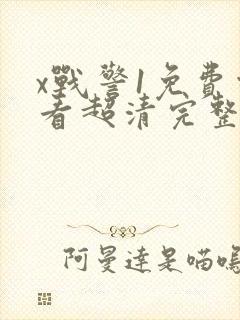 x戰警1免費
看超清完整
阿曼達是喵嗚